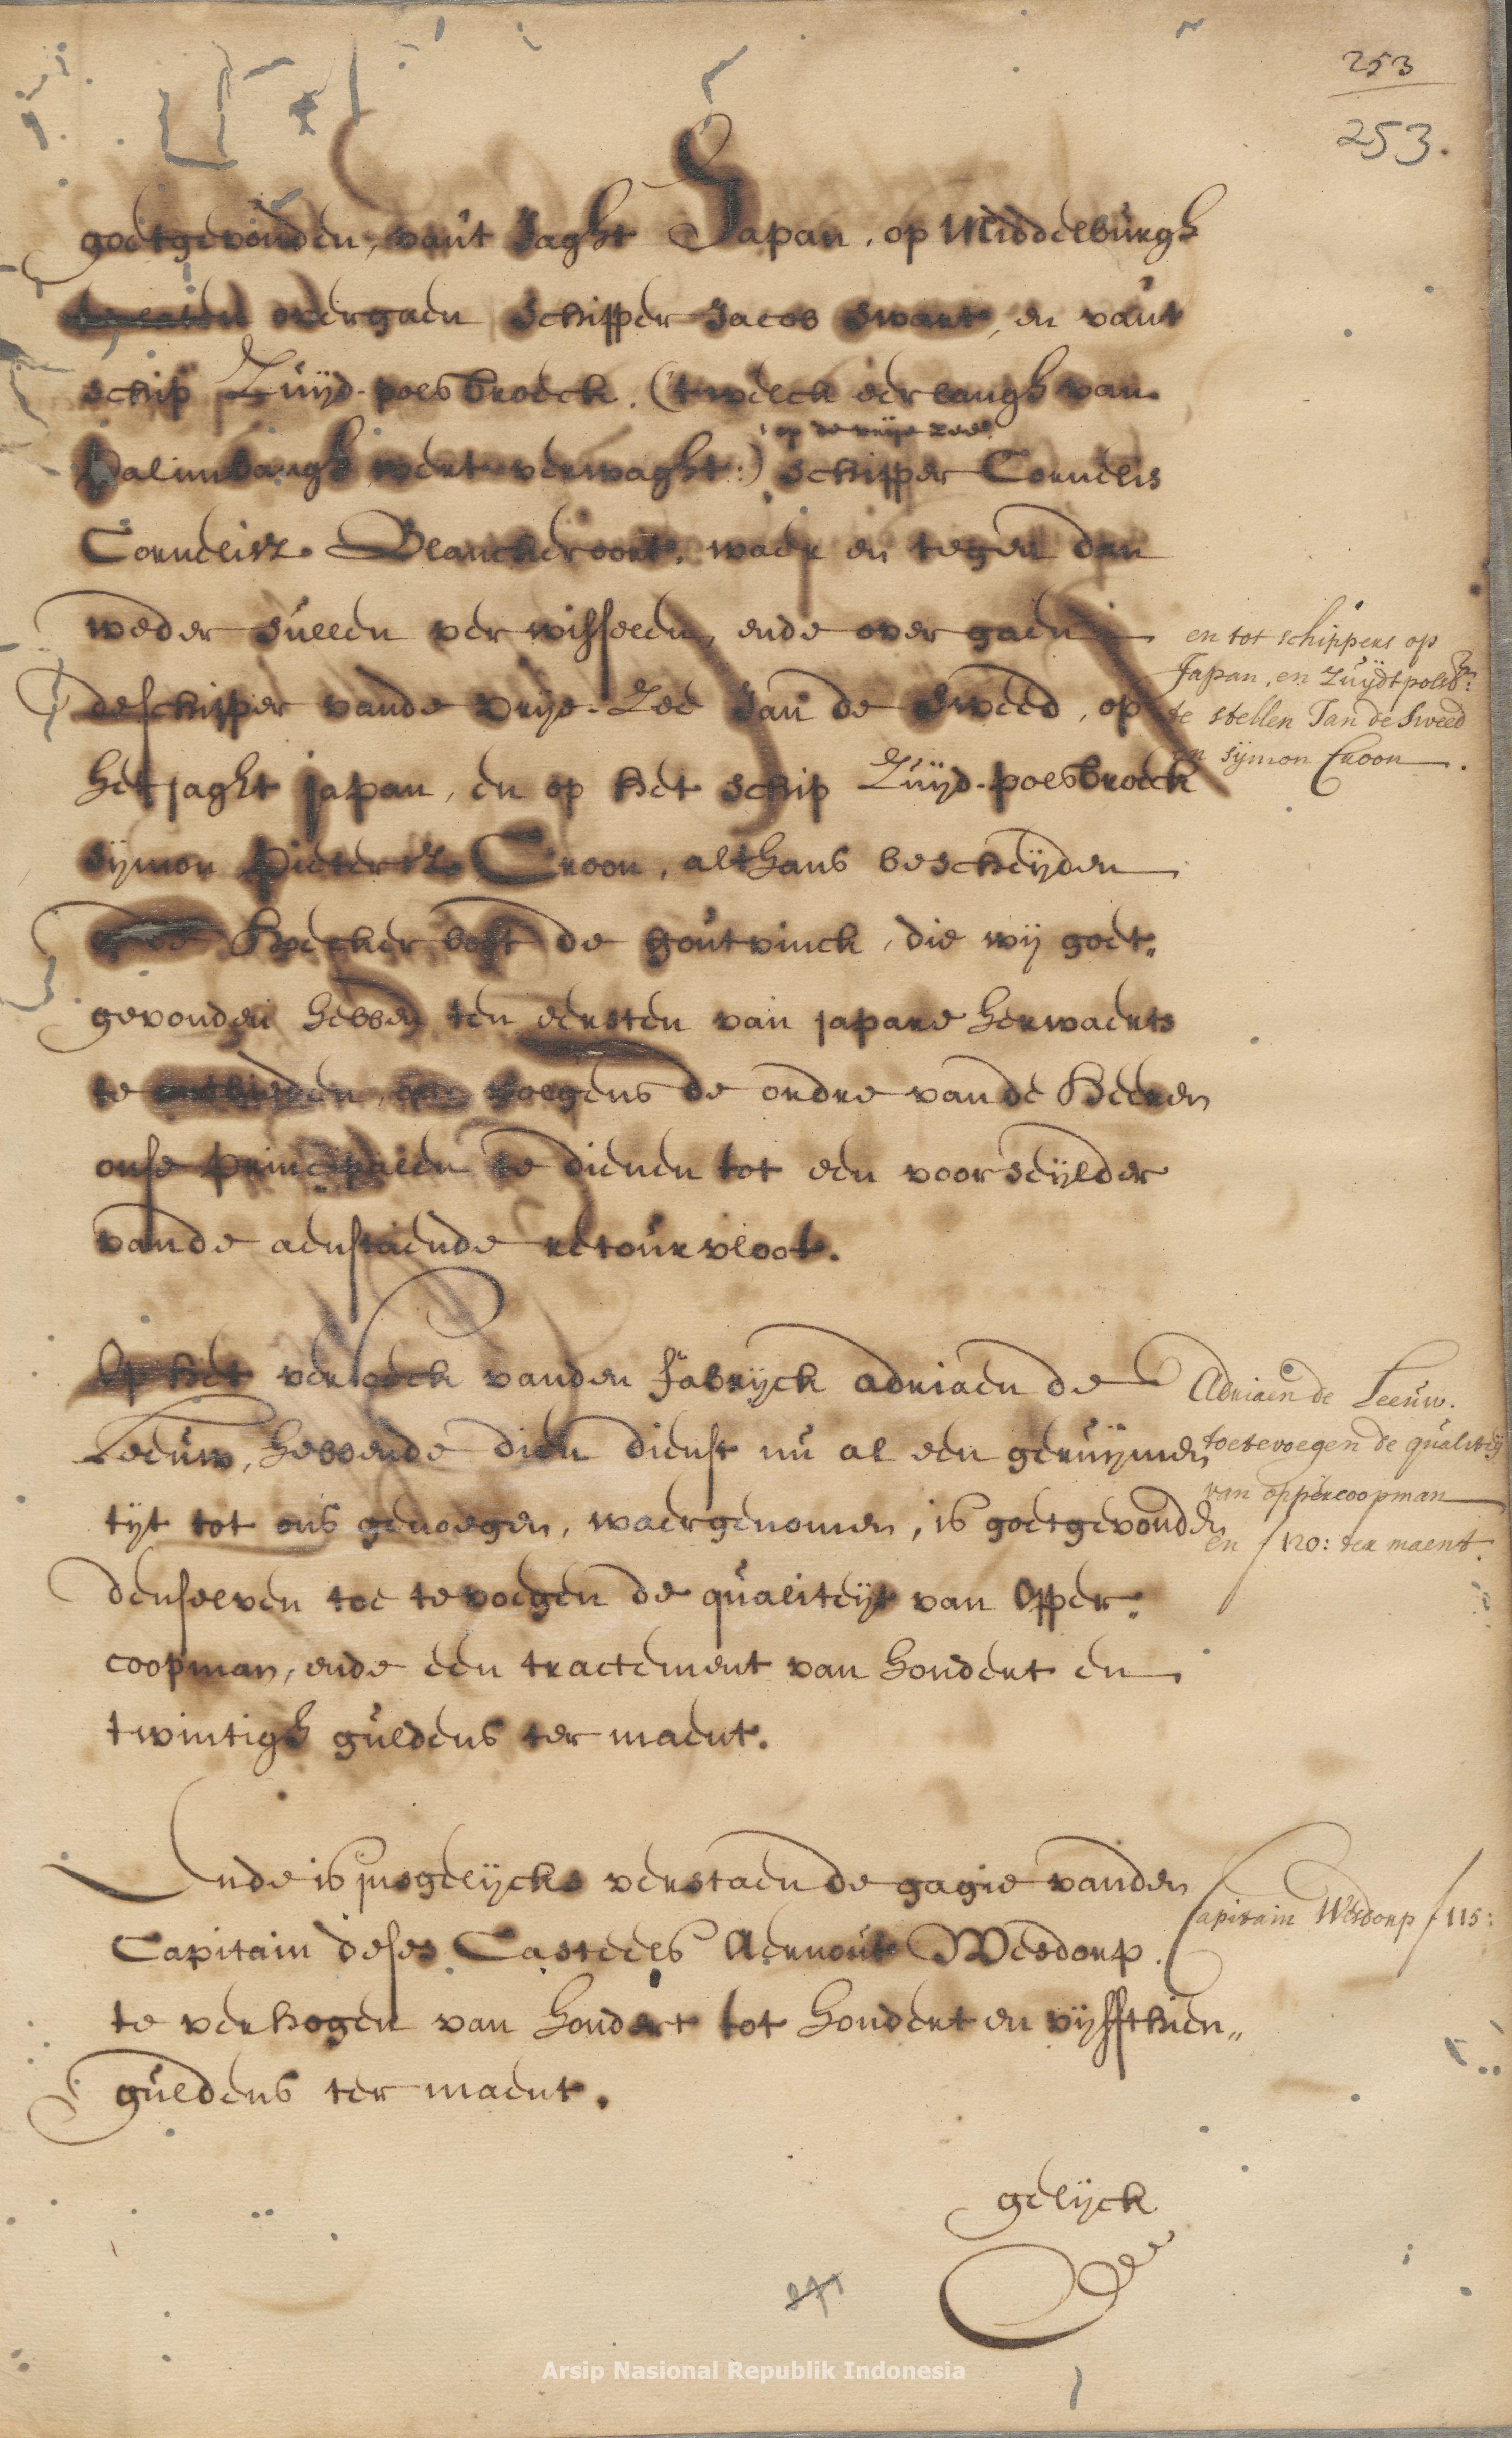 253
253.
goetgevonden, vant Jaght Japan, op Middelburgh
te laten overgaen Schipper Jacob Swart, en vant
schip Zuyd-polsbroeck. (twelck eerlangh van
Palimbangh wert verwaght:) op de vrije zee schipper Cornelis
Cornelisz. Blanckevoort, waer en tegen dan
weder sullen verwisselen, ende over gaen
de schipper vande vrije-Zee Jan de Sweed, op
het jaght japan, en op het schip Zuyd-polsbroeck
Symon Pietersz. Croon, althans bescheyden
op de Hoecker boot de goutvinck, die wij goet„
gevonden hebben ten eersten van japare herwaerts
te ontbieden, om volgens de ordre vande Heeren
onse principalen te dienen tot een voorseylder
vande aenstaende retourvloot.
en tot schippers op
Japan, en Zuydtpolsb:
te stellen Jan de Sweed
en Symon Croon.
Op het versoeck vanden fabryck Adriaen de
Leeuw, hebbende dien dienst nu al een geruymen
tyt tot ons genoegen, waergenomen, is goetgevonden
denselven toe te voegen de qualiteyt van Opper„
coopman, ende een tractement van hondert en
twintigh guldens ter maent.
Adriaen de Leeuw.
toetevoegen de qualitey
van oppercoopman
en f 120: ter maent.
Ende is insgelycks verstaen de gagie vanden
Capitain deses Casteels Aernout Wesdorp.
te verhogen van hondert tot hondert en vyffthien„
guldens ter maent.
Capitain Wesdorp f 115:
gelyck
Arsip Nasional Republik Indonesia